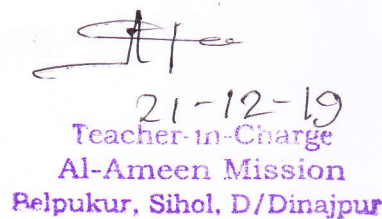 21-12-19
Teacher-in-Charge
Al-Ameen Mission
Belpukur, Sihol, D/Dinajpur